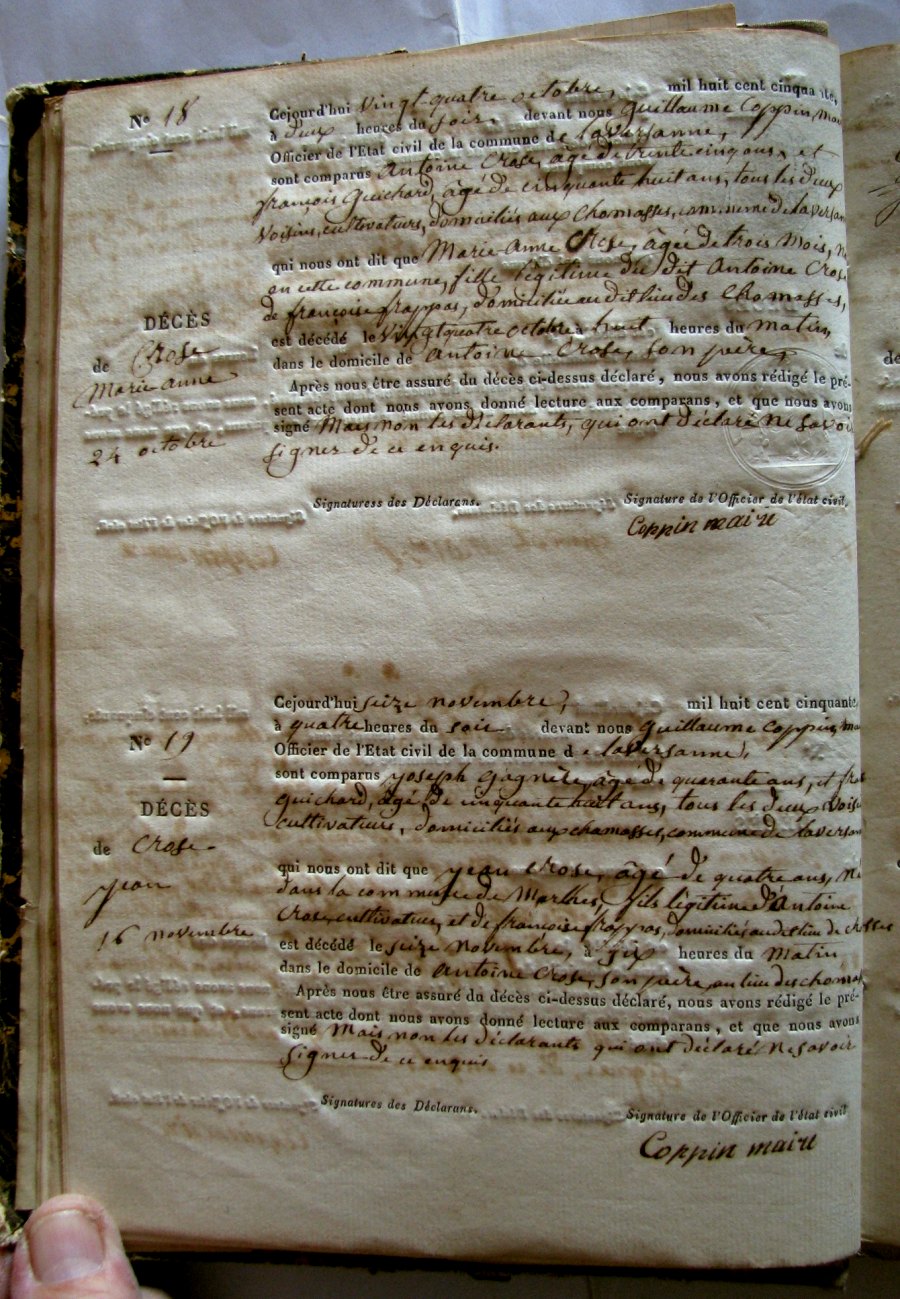 N° 18
Cejourd'hui vingt-quatre octobre, mil huit cent cinquante,
à deux heures du soir, devant nous Guillaume Coppin, mai
Officier de l'Etat civil de la commune de Laversanne,
sont comparus Antoine Crose, âgé de trente cinq ans, et
françois Guichard, âgé de cinquante huit ans, tous les deux
Voisins, cultivateurs, domiciliés aux Chomasses, commune de laversan
qui nous ont dit que Marie-Anne Crose, âgée de trois mois, n
en cette commune, fille légitime du dit Antoine Crose
de françoise frappas, domiciliée au dit lieu des Chomasses,
est décédé le vingt quatre octobre à huit heures du matin,
dans le domicile de Antoine Crose, son père,
Après nous être assuré du décès ci-dessus déclaré, nous avons rédigé le pré-
sent acte dont nous avons donné lecture aux comparans, et que nous avons
signé Mais non les déclarants, qui ont déclaré ne savoir
signer de ce enquis.
DÉCÈS
de Crose
Marie-anne
24 octobre
Signaturess des Déclarans.
Signature de l'Officier de l'état civil,
Coppin maire
Cejourd'hui seize novembre, mil huit cent cinquante,
à quatre heures du soir devant nous Guillaume Coppin, ma
Officier de l'Etat civil de la commune de laversanne,
sont comparus Joseph Gagnère, âgé de quarante ans, et fra
Guichard, âgé de cinquante huit ans, tous les deux Voisi
cultivateurs, domiciliés aux chamasses, commune de laversan
qui nous ont dit que Jean Crose, âgé de quatre ans, né
dans la commune de Marlhes, fils légitime d'Antoine
Crose, cultivateur, et de françoise frappas, domiciliés au dit lieu de
est décédé le seize novembre, à six heures du matin,
dans le domicile de Antoine Crose, son père, au lieu des chomas
Après nous être assuré du décès ci-dessus déclaré, nous avons rédigé le pré-
sent acte dont nous avons donné lecture aux comparans, et que nous avons
signé Mais non les déclarants qui ont déclaré ne savoir
signer de ce enquis
N° 19
DÉCÈS
de Crose
Jean
16 novembre
Signatures des Déclarans.
Signature de l'Officier de l'état civil
Coppin maire